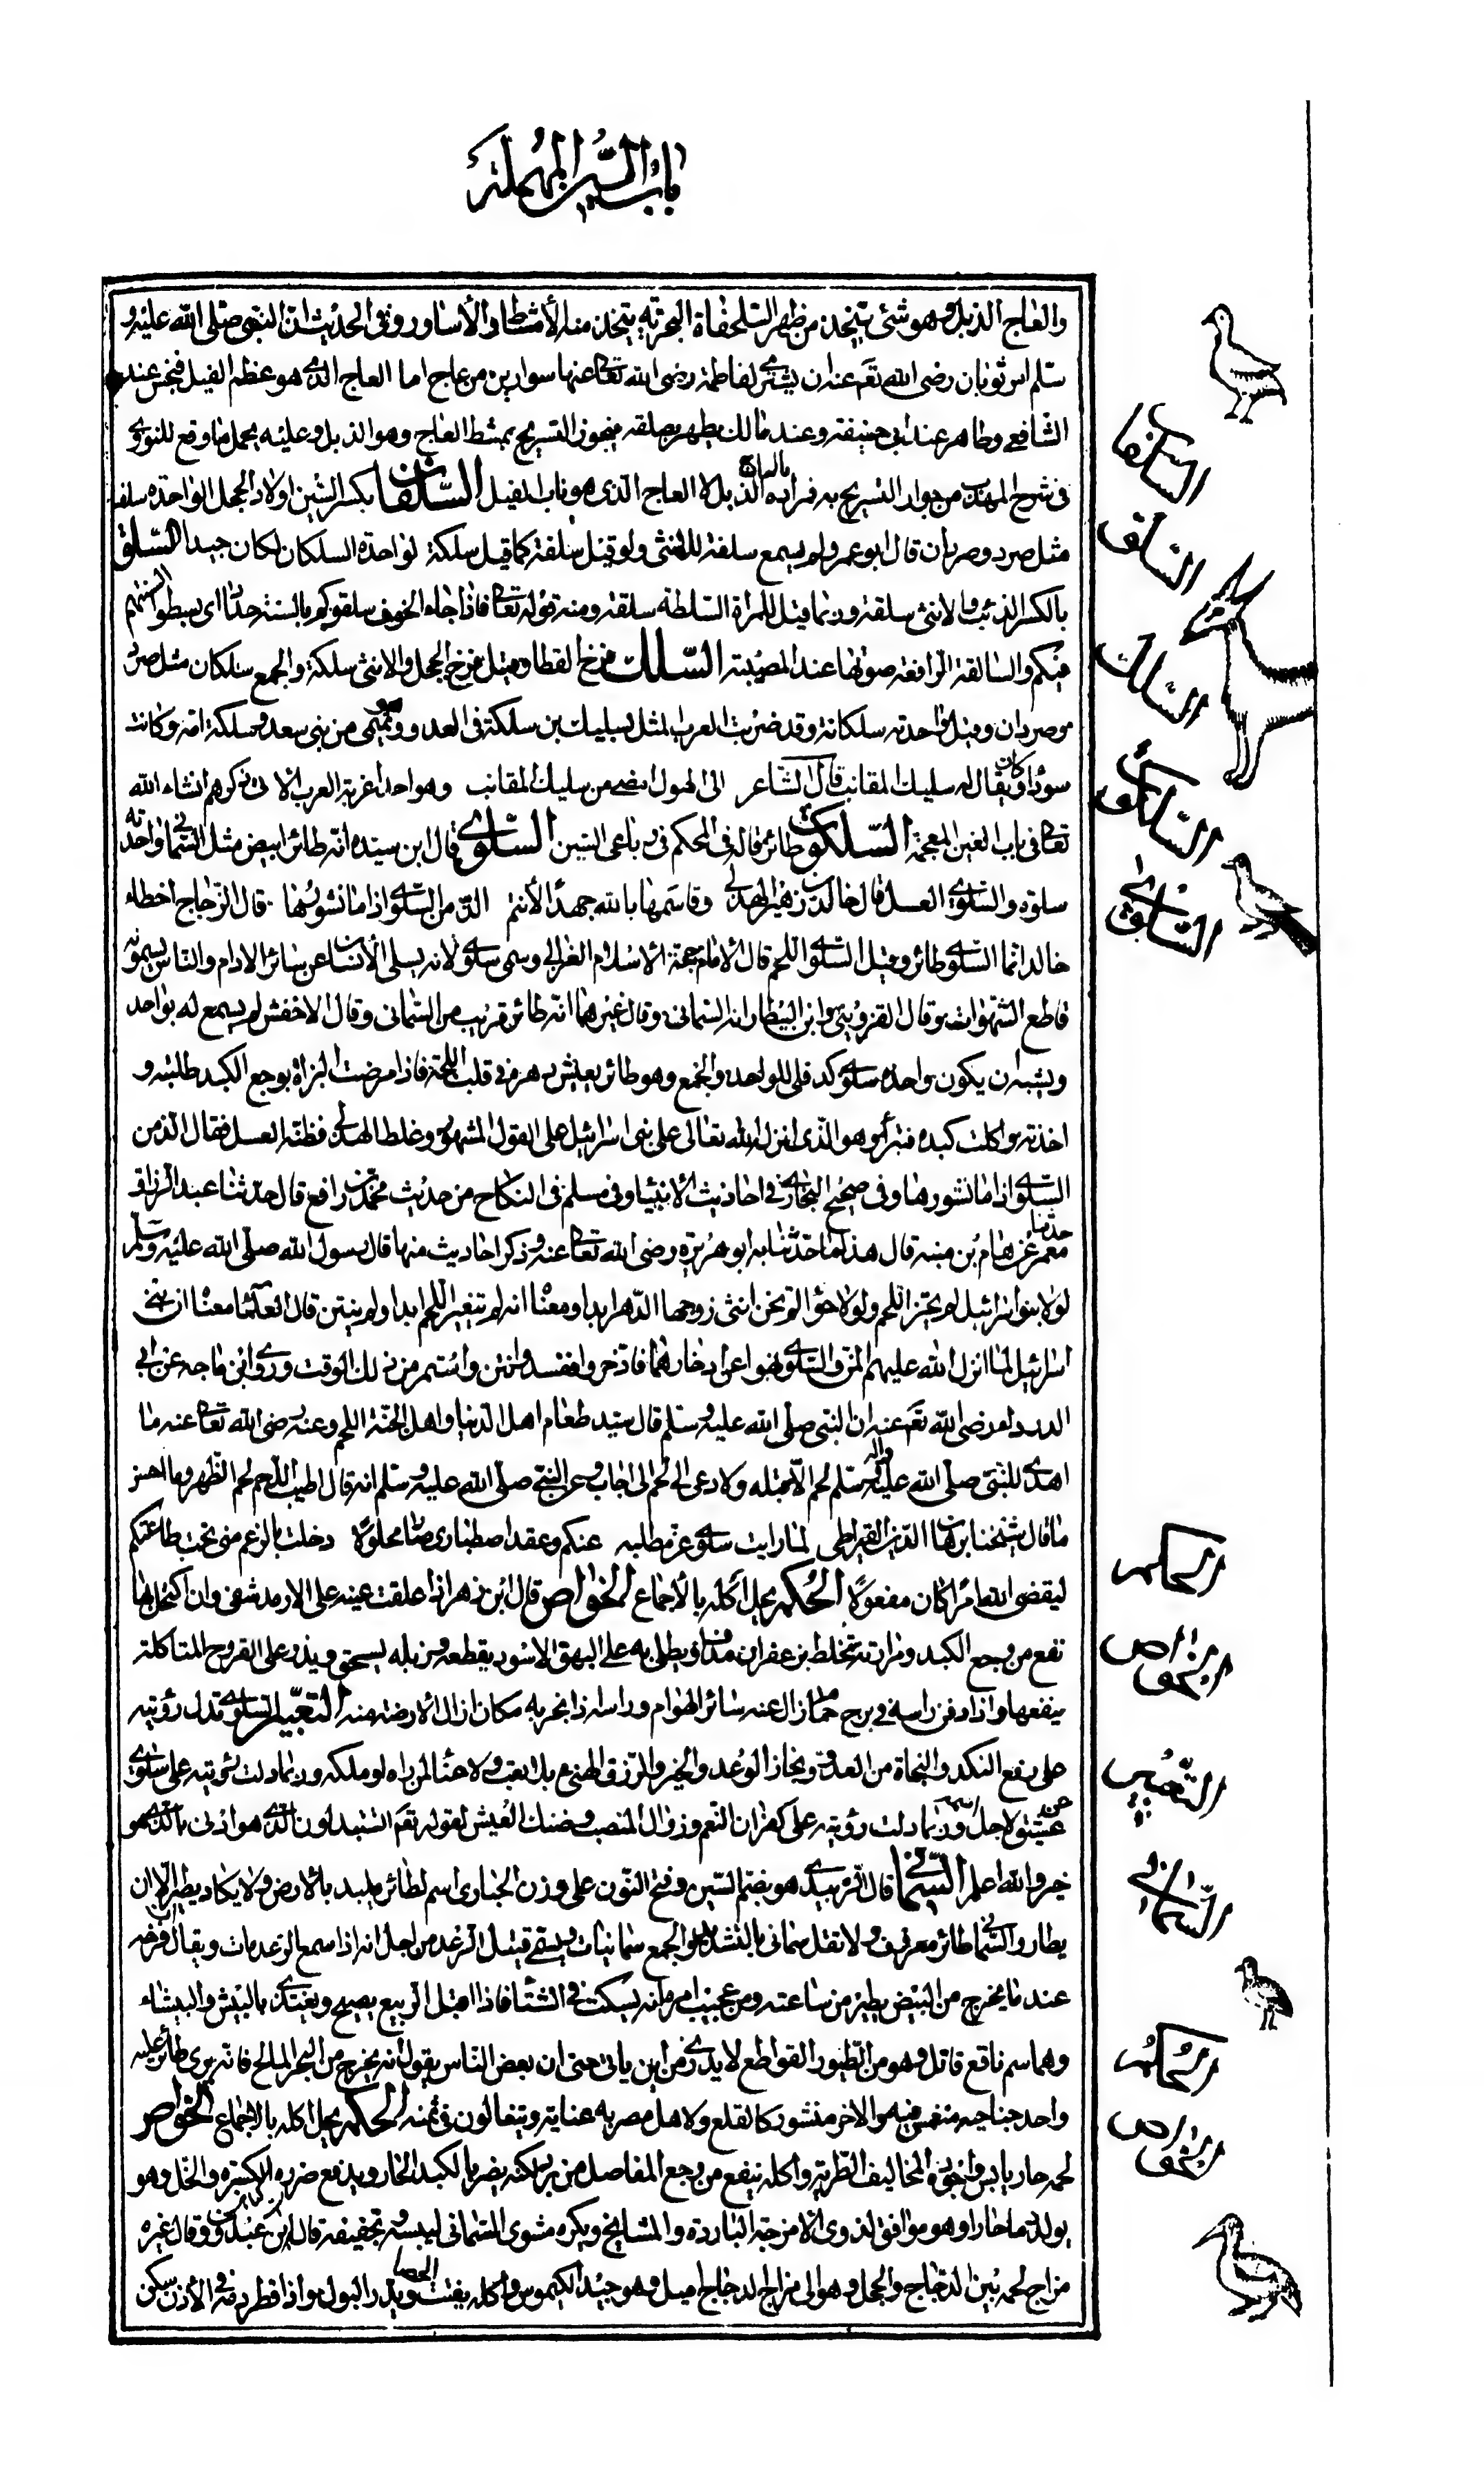 باب السين المهملة
والعاج الذبل وهو شئ يتخذ من ظهر السلحفاة البحرية يتخذ منه الأمشاط والأساور وفى الحديث ان النبى صلى الله عليه و
سلم امر ثوبان رضى الله تعه عنه ان يشترى لفاطمة رضى الله تعا عنها سوارين من عاج اما العاج الذى هو عظم الفيل فنجس عند
الشافعى وطاهر عند ابى حنيفة وعند مالك يطهر بصلقه فيجوز التسريح بمشط العاج وهو الذبل وعليه يحمل ما وقع للنووى
فى شرح المهذب من جواز التسريح به فمراده بالعاج الذبل لا العاج الذى هو ناب الفيل السلفان بكسر السين اولاد الحجل الواحدة سلف
مثل صرد وصردان قال ابو عمرو لم يسمع سلفة للانثى ولو قيل سلفة كما قيل سلكة لواحدة السلكان لكان جيدا السلق
بالكسر الذئب والانثى سلقة وربما قيل للمراة السلطة سلقة ومنه قوله تعا فاذا جاء الخوف سلقوكم بالسنة حداد اى بسطوا السنتهم
فيكم والسالقة الرافعة صوتها عند المصيبة السلك فرخ القطا وقيل فرخ الحجل والانثى سلكة والجمع سلكان مثل صرد
وصردان وقيل واحدته سلكانة وقد ضربت العرب المثل بسليك بن سلكة فى العدو وهو تميمى من بنى سعد وسلكة امه وكانت
سوداء وكان يقال له سليك المقانب قال الشاعر الى الهول امضى من سليك المقانب وهو احد اغربة العرب الاتى ذكرهم انشاء الله
تعا فى باب الغين المعجمة السلكوت طائر قاله فى المحكم فى رباعى السين السلوى قال ابن سيده انه طائر ابيض مثل السمانى واحدته
سلوة والسلوى العسل قال خالد بن زهير الهذلى وقاسمها بالله جهدا لأنتم الذ من السلوى اذا ما نشورها قال الزجاج اخطاء
خالد انما السلوى طائر وقيل السلوى اللحم قال الامام حجة الاسلام الغزالى وسمى سلوى لانه يسلى الأنسان عن سائر الادام والناس يسمونه
قاطع الشهوات وقال القزوينى وابن البيطار انه السمانى وقال غيرهما انه طائر قريب من السمانى وقال الاخفش لم يسمع له بواحد
ويشبه ان يكون واحده سلوى كدفلى للواحد والجمع وهو طائر يعيش دهره فى قلب اللجة فاذا مرضت البزاة بوجع الكبد طلبته و
اخذته واكلت كبده فتبرأ وهو الذى انزل الله تعالى على بنى اسرائيل على القول المشهور وغلط الهذلى فظنه العسل فقال الذ من
السلوى اذا ما نشورها وفى صحيح البخارى فى احاديث الانبياء وفى مسلم فى النكاح من حديث محمد بن رافع قال حدثنا عبد الرزاق
حدثنا معمر عن همام بن منبه قال هذا ما حدثنا به ابو هريرة رضى الله تعا عنه وذكر احاديث منها قال رسول الله صلى الله عليه وسلم
لولا بنو اسرائيل لم يخنز اللحم ولولا حوا لم تخن انثى زوجها الدهر ابدا ومعناه انه لم تتغير اللحم ابدا ولم ينتن قال العلماء معناه ان بنى
اسرائيل لما انزل الله عليهم المن والسلوى نهوا عن ادخارهما فادخروا ففسد وانتن واستمر من ذلك الوقت وروى ابن ماجه عن ابى
الدرداء رضى الله تعه عنه ان النبى صلى الله عليه وسلم قال سيد طعام اهل الدنيا واهل الجنة اللحم وعنه رضى الله تعا عنه ما
اهدى للنبى صلى الله عليه واله وسلم لحم الا قبله ولا دعى الى لحم الى اجاب وعن النبى صلى الله عليه وسلم انه قال اطيب اللحم لحم الظهر وما احسن
ما قال شيخنا برهان الدين القيراطى لما رايت سلوى عز مطلبه عنكم وعقد اصطبارى صار محلولا دخلت بالرغم منى تحت طاعتكم
ليقضى الله امرا كان مفعولا الحكم يحل اكله بالاجماع الخواص قال ابن زهر اذا علقت عينه على الارمد شفى وان اكتحل بها
نفع من وجع الكبد ومرارته تخلط بزعفران مداف ويطلى به على البهق الاسود يقطعه وزبله يسحق ويذر على القروح المتاكلة
ينفعها واذا دفن راسه فى برج حمام زال عنه سائر الهوام وراسه اذا بخر به مكان ازال الارضة منه التعبير السلوى تدل رؤيته
على رفع النكد والنجاة من العدو ونجاز الوعد والخير والرزق الهنى بلا تعب ولا عنا لمن راه او ملكه وربما دلت رؤيته على سلوى
عن عشق لاجل اسمه وربما دلت رؤيته على كفران النعم وزوال المنصب وضنك العيش لقوله تعه اتستبدلون الذى هو ادنى بالذى هو
خير والله اعلم السمانى قال الزبيدى هو بضم السين وفتح النون على وزن الحبارى اسم لطائر يلبد بالارض ولا يكاد يطير الا ان
يطار والسمانى طائر معروف ولا تقل سمانى بالتشديد والجمع سمانيات ويسمى قتيل الرعد من اجل انه اذا سمع الرعد مات ويقال ان فرخه
عند ما يخرج من البيض يطير من ساعته ومن عجيب امره انه يسكت فى الشتا فاذا اقبل الربيع يصيح ويغتذى بالبيش والبيشاء
وهما سم ناقع قاتل وهو من الطيور القواطع لا يدرى من اين ياتى حتى ان بعض الناس يقول انه يخرج من البحر الملح فانه يرى طائرا عليه
واحد جناحيه منغمس فيه والاخر منشور كالقلع ولاهل مصر به عناية ويتغالون فى ثمنه الحكم يحل اكله بالاجماع الخواص
لحمه حار يابس واجوده المخاليف الطرية واكله ينفع من وجع المفاصل من برد لكنه يضر بالكبد الحار ويدفع ضرره الكسبره والخل وهو
يولد دما حارا وهو موافق لذوى الامزجة الباردة والمشايخ ويكره مشوى السمانى ليبسه وتجفيفه قال ابن عبدون وقال غيره
مزاج لحمه بين الدجاج والحجل وهو الى مزاج الدجاج اميل وهو جيد الكيموس واكله يفتت الحصا ويدر البول واذا قطر دمه فى الأذن سكن
السلفان
السلق
السلك
السلكوت
السلوى
الحكم
الخواص
التعبير
السمانى
الحكم
الخواص